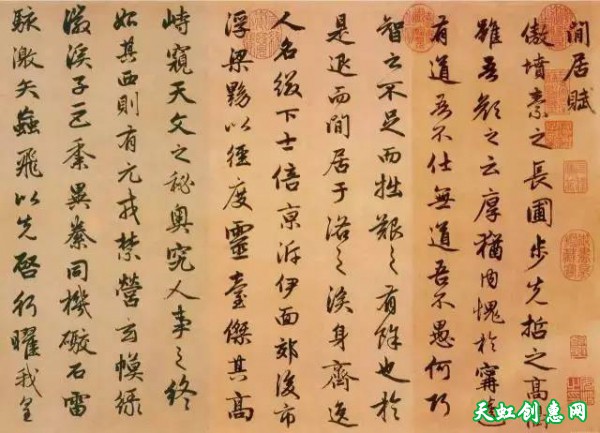 閒居賦
傲墳素之長圃步先哲之高衢
雖吾顏之云厚猶內愧於甯蘧
有道吾不仕無道吾不愚何巧
智之不足而拙艱之有餘也於
是退而閒居于洛之涘身齊逸
人名綴下士倍京泝伊面郊後市
浮梁黝以徑度靈臺傑其高
峙窺天文之秘奧究人事之終
始其西則有元戎禁營玄幙綠
徽溪子巨黍異絭同機礮石雷
駭激矢蝱飛以先啓行曜我皇
天虹创惠网